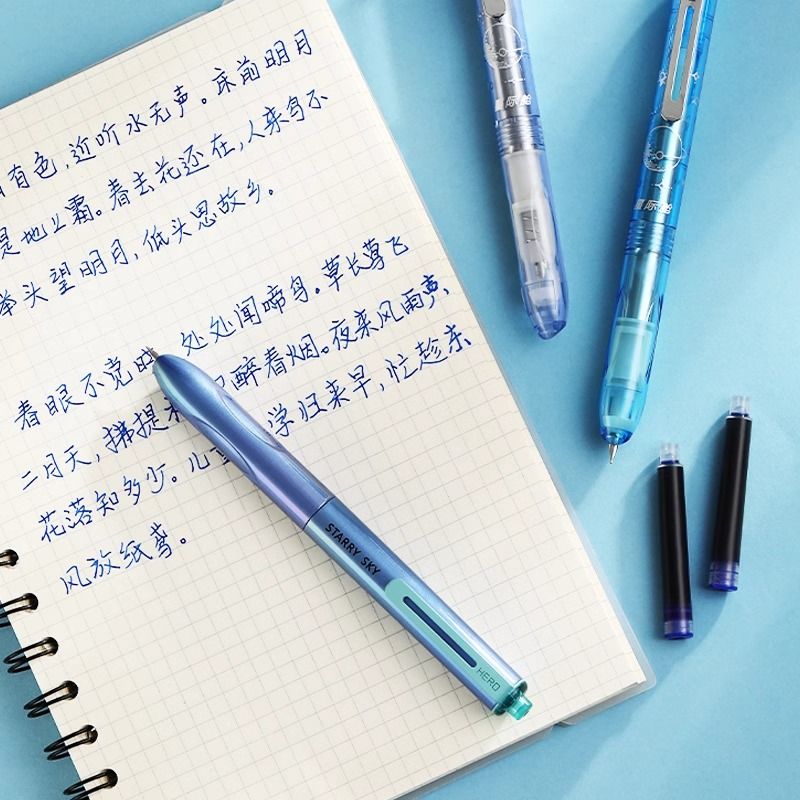 有色,近听水无声。床前明月
是地上霜。春去花还在,人来鸟不
举头望明月,低头思故乡。
春眠不觉 处处闻啼鸟。草长莺飞
二月天,拂提 醉春烟。夜来风雨声,
花落知多少。儿童 学归来早,忙趁东
风放纸鸢。
STARRY SKY
HERO
际舱
际舱